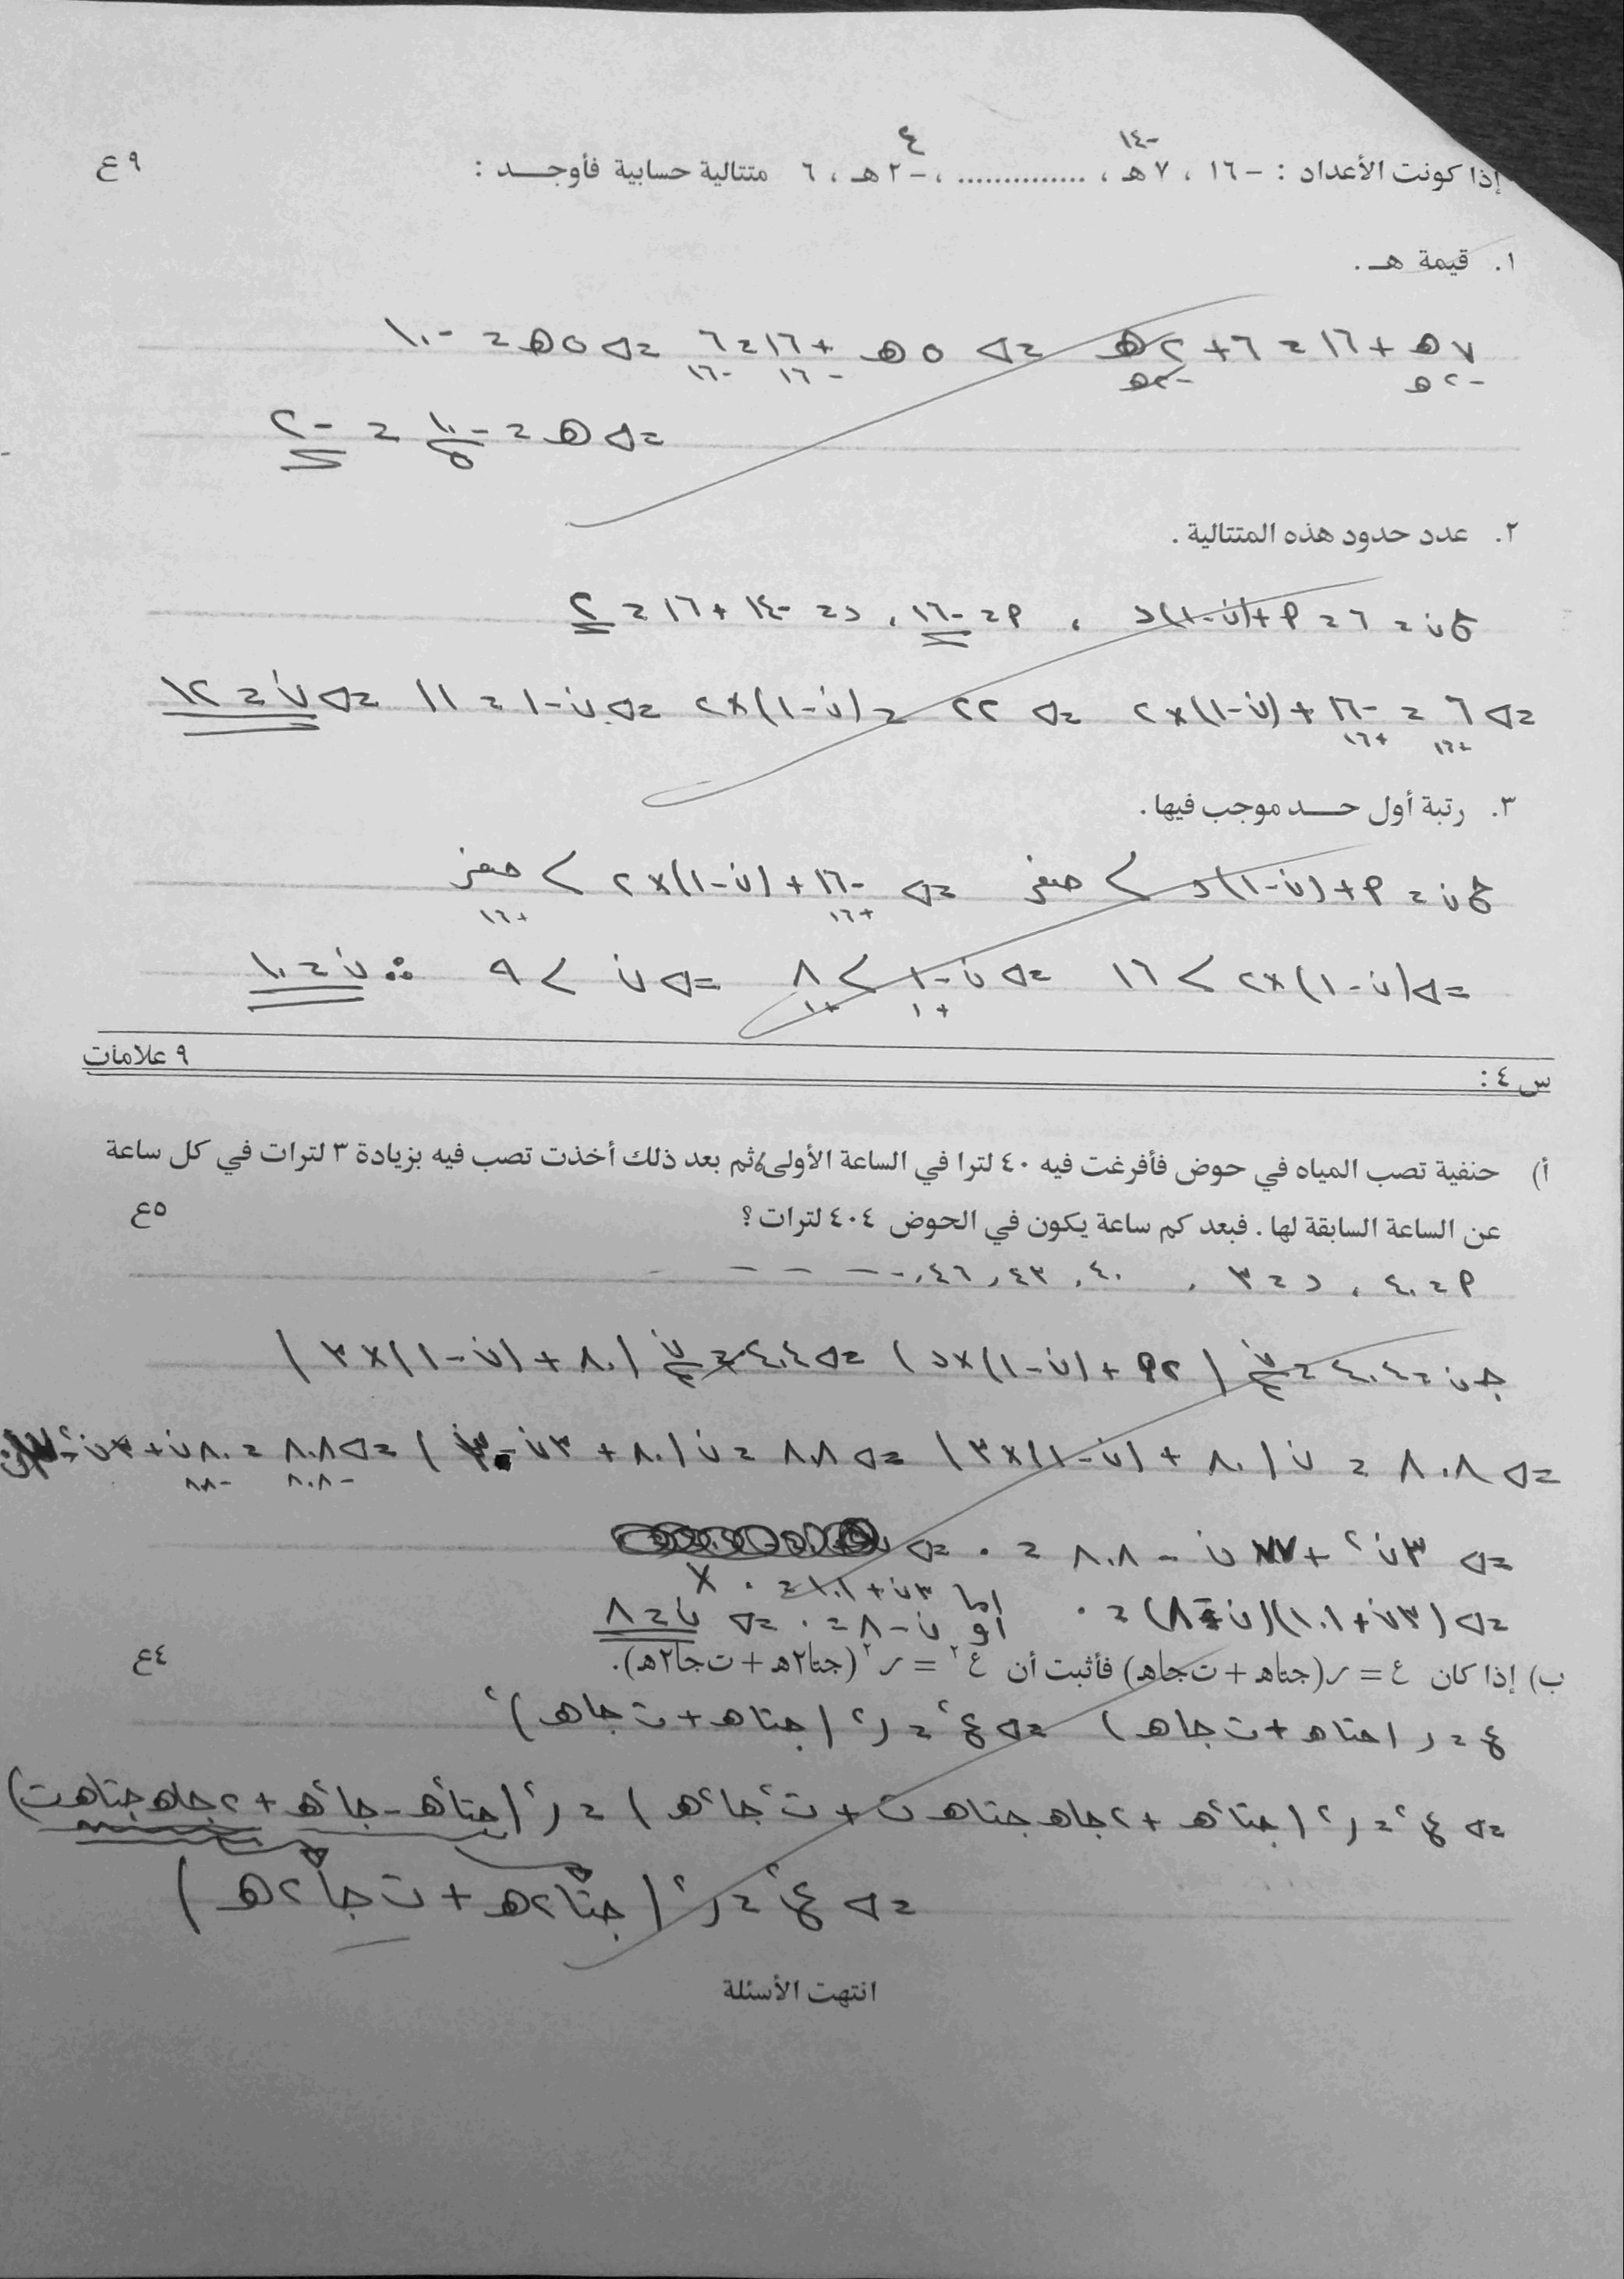 -١٤ ٤
إذا كونت الأعداد : -١٦ ، ٧هـ ، .............. ، -٢هـ ، ٦ متتالية حسابية فأوجــد : ٩ع
١. قيمة هـ .
٧هـ + ١٦ = ٦ + ٢هـ => ٥هـ + ١٦ = ٦ => ٥هـ = -١٠
-٢هـ -٢هـ -١٦ -١٦
=> هـ = -١٠/٥ = -٢
٢. عدد حدود هذه المتتالية .
حن = ٦ = أ + (ن-١)د ، أ = -١٦ ، د = -١٤ + ١٦ = ٢
=> ٦ = -١٦ + (ن-١)×٢ => ٢٢ = (ن-١)×٢ => ن-١ = ١١ => ن = ١٢
+١٦ +١٦
٣. رتبة أول حــد موجب فيها .
حن = أ + (ن-١)د > صفر => -١٦ + (ن-١)×٢ > صفر
+١٦ +١٦
=> (ن-١)×٢ > ١٦ => ن-١ > ٨ => ن > ٩ ∴ ن = ١٠
+١ +١
س٤ : ٩ علامات
أ) حنفية تصب المياه في حوض فأفرغت فيه ٤٠ لترا في الساعة الأولى، ثم بعد ذلك أخذت تصب فيه بزيادة ٣ لترات في كل ساعة
عن الساعة السابقة لها . فبعد كم ساعة يكون في الحوض ٤٠٤ لترات ؟ ٥ع
أ = ٤٠ ، د = ٣ ، ٤٠ ، ٤٣ ، ٤٦ ، - - - -
جن = ٤٠٤ = ن/٢ (٢أ + (ن-١)×د) => ٤٠٤ = ن/٢ (٨٠ + (ن-١)×٣)
=> ٨٠٨ = ن(٨٠ + (ن-١)×٣) => ٨٠٨ = ن(٨٠ + ٣ن - ٣) => ٨٠٨ = ٨٠ن + ٣ن٢ - ٣ن
-٨٠٨ -٨٠٨
=> ٣ن٢ + ٧٧ن - ٨٠٨ = ٠ =>
=> (٣ن + ١٠١)(ن - ٨) = ٠ اما ٣ن + ١٠١ = ٠ X
او ن - ٨ = ٠ => ن = ٨
ب) إذا كان ع = ر(جتاهـ + ت جاهـ) فأثبت أن ع٢ = ر٢(جتا٢هـ + ت جا٢هـ). ٤ع
ع = ر(جتاهـ + ت جاهـ) => ع٢ = ر٢(جتاهـ + ت جاهـ)٢
=> ع٢ = ر٢(جتا٢هـ + ٢جاهـ جتاهـ ت + ت٢ جا٢هـ) = ر٢(جتا٢هـ - جا٢هـ + ٢جاهـ جتاهـ ت)
=> ع٢ = ر٢(جتا٢هـ + ت جا٢هـ)
انتهت الأسئلة